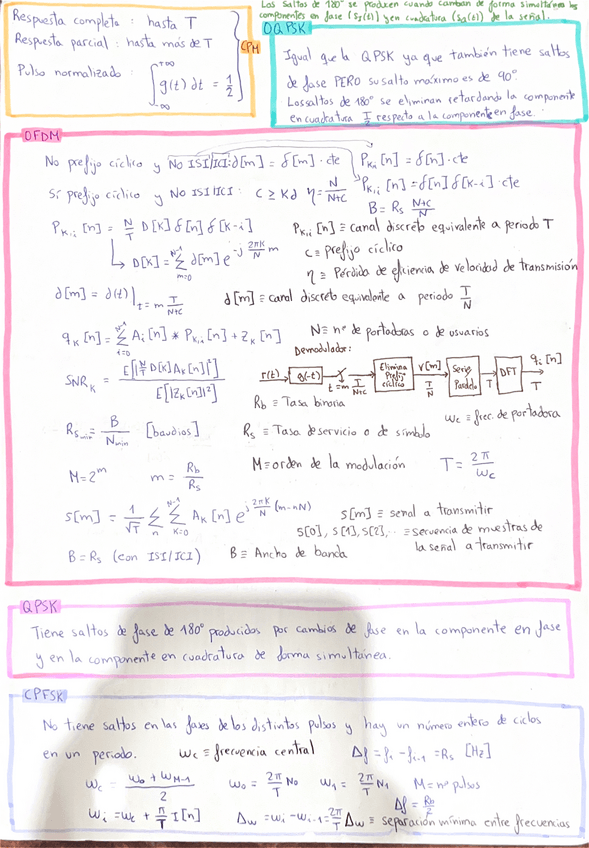 Respuesta completa : hasta T
Respuesta parcial : hasta más de T
Pulso normalizado : ∫_{-∞}^{+∞} g(t) dt = 1/2
CPM
Los saltos de 180° se producen cuando cambian de forma simultánea las
componentes en fase (s_I(t)) y en cuadratura (s_Q(t)) de la señal.
OQPSK
Igual que la QPSK ya que también tiene saltos
de fase PERO su salto máximo es de 90°.
Los saltos de 180° se eliminan retardando la componente
en cuadratura T/2 respecto a la componente en fase.
OFDM
No prefijo cíclico y No ISI/ICI: d[m] = δ[m] · cte P_{K,i}[n] = δ[n] · cte
Sí prefijo cíclico y No ISI/ICI : C ≥ Kd η = N/(N+C) P_{K,i}[n] = δ[n] δ[k-i] · cte
B = R_s (N+C)/N
P_{K,i}[n] = N/T D[k] δ[n] δ[k-i] P_{K,i}[n] ≡ canal discreto equivalente a periodo T
D[k] = Σ_{m=0}^{N-1} d[m] e^{-j 2πk/N m} C ≡ prefijo cíclico
η ≡ Pérdida de eficiencia de velocidad de transmisión
d[m] = d(t)|_{t = m T/(N+C)} d[m] ≡ canal discreto equivalente a periodo T/N
q_K[n] = Σ_{i=0}^{N-1} A_i[n] * P_{K,i}[n] + Z_K[n] N ≡ nº de portadoras o de usuarios
Demodulador:
SNR_K = E[|N/T D[k] A_K[n]|²] / E[|Z_K[n]|²]
r(t) g(-t) t = m T/(N+C) Elimina Prefijo cíclico v[m] T/N Serie Paralelo T DFT q_i[n] T
R_b ≡ Tasa binaria
w_c ≡ frec. de portadora
R_{s min} = B/N_min [baudios] R_s ≡ Tasa de servicio o de símbolo
M = 2^m m = R_b/R_s M ≡ orden de la modulación T = 2π/w_c
s[m] = 1/√T Σ_n Σ_{K=0}^{N-1} A_K[n] e^{j 2πK/N (m-nN)} s[m] ≡ señal a transmitir
s[0], s[1], s[2],·· ≡ secuencia de muestras de
la señal a transmitir
B = R_s (con ISI/ICI) B ≡ Ancho de banda
QPSK
Tiene saltos de fase de 180° producidos por cambios de fase en la componente en fase
y en la componente en cuadratura de forma simultánea.
CPFSK
No tiene saltos en las fases de los distintos pulsos y hay un número entero de ciclos
en un periodo. w_c ≡ frecuencia central Δf = f_i - f_{i-1} = R_s [Hz]
w_c = (w_0 + w_{M-1})/2 w_0 = 2π/T N_0 w_1 = 2π/T N_1 M = nº pulsos
Δf = R_b/2
w_i = w_c + π/T I[n] Δw = w_i - w_{i-1} = 2π/T Δw ≡ separación mínima entre frecuencias